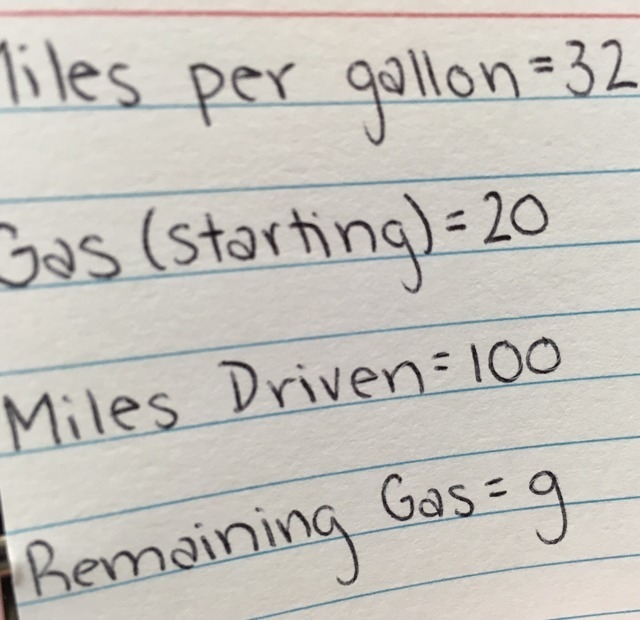 Miles per gallon = 32
Gas (starting) = 20
Miles Driven = 100
Remaining Gas = g